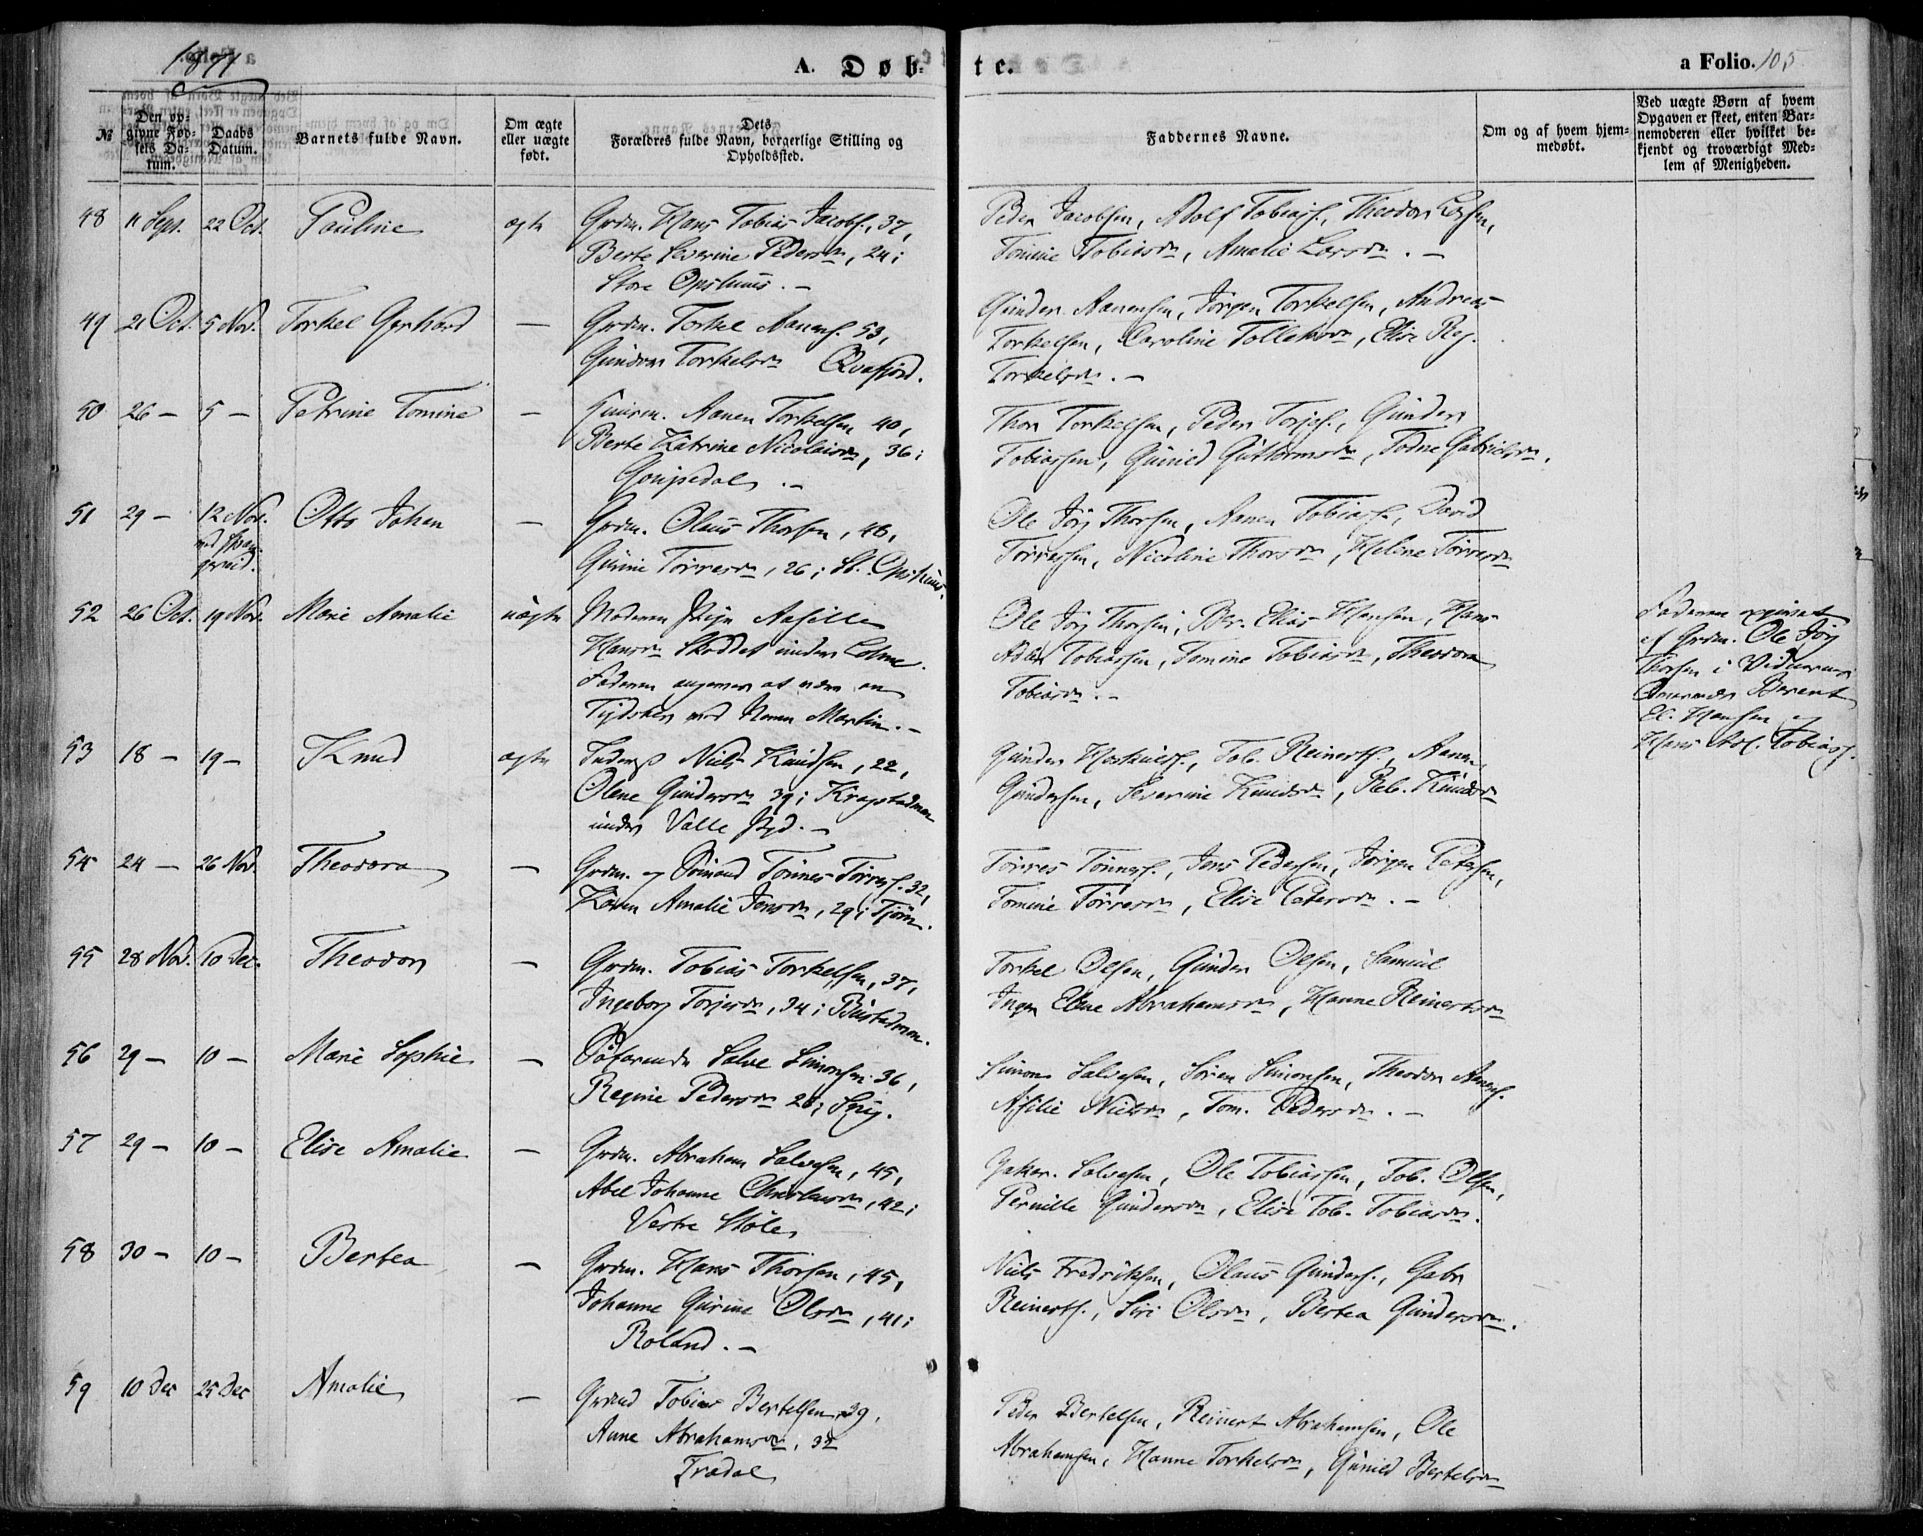 1871
A. Døbte.
a Folio. 105
№
Den opgivne Fødsels Datum.
Daabs Datum.
Barnets fulde Navn.
Om ægte eller uægte født.
Dets Forældres fulde Navn, borgerlige Stilling og Opholdssted.
Faddernes Navne.
Om og af hvem hjemmedøbt.
Ved uægte Børn af hvem Opgaven er skeet, enten Barnemoderen eller hvilket bekjendt og troværdigt Medlem af Menigheden.
48 11 Sept. 22 Oct. Pauline ægte Grdm. Hans Tobias Jacobs., 37,
Berte Severine Pedersd., 24;
Store Opshuus. —
Peder Jacobsen, Adolf Tobias., Theodor
Tomine Tobiasd., Amalie Larsd. —
49 21 Oct. 5 Nov. Torkel Gerhard — Grdm. Torkel Aanens. 53,
Gunder Torkelsd. Qvafjord.
Gunder Aanensen, Jørgen Torkelsen, Andreas
Torkelsen, Caroline Tolleksd., Elise Reg.
Torkelsd. —
50 26 — 5 — Petrine Tomine — Huusm. Aanen Torkelsen 40,
Berte Katrine Nicolaisd., 36;
Thor Torkelsen, Peder Torjes., Gunder
Tobiassen, Gunild Guttormsd., Todne Gabrielsd.
51 29 — 12 Nov. Otto Johan — Grdm. Olaus Thorsen, 46,
Gurine Tørresd., 26; St. Opshuus.
Ole Jørg Thorsen, Aanen Tobias., David
Tørressen, Nicoline Thorsd., Helene Tørresd.
52 26 Oct. 19 Nov. Marie Amalie uægte Moderen Pige Aasille
Hansd. Skoddet under Holme.
Faderen angives at være en
Tydsker ved Navn Martin. —
Ole Jørg Thorsen, Ber. Elias Hansen, Hans
Adolf Tobiassen, Tomine Tobiasd., Theodora
Tobiasd. —
Faderen opgivet
af Grdm. Ole Jørg
Thorsen i Vidneres
Overvær Berent
El. Hansen og
Hans Ad. Tobias.
53 18 — 19 — Knud ægte Inderst Niels Knudsen, 22,
Olene Gundersd. 39; Kragstadmoen
under Valle Pgd. —
Gunder Tob. Reinerts., Aanen
Gundersen, Severine Knudsd., Reb. Knudsd.
54 24 — 26 Nov. Theodora — Grdm. og Sømand Tønnes Tørres. 32,
Karen Amalie Jensd., 29; Tjøm.
Tørres Tønnes., Jens Pedersen, Jørgen Petersen,
Tomine Tørresd., Elise Petersd. —
55 28 Nov. 10 Dec. Theodor — Grdm. Tobias Torkelsen, 37,
Ingeborg Torjesd., 34; Buistadmoen.
Torkel Olsen, Gunder Olsen, Samuel
Inger Elene Abrahamsd., Hanne Reinertsd.
56 29 — 10 — Marie Sophie — Søfarende Salve Simonsen 36,
Regine Pedersd. 28;
Simon Salvesen, Søren Simonsen, Theodor Aanens.
Asfilie Nielsd., Tom. Pedersd. —
57 29 — 10 — Elise Amalie — Grdm. Abraham Salvesen, 45,
Abel Johanne Christensd., 42;
Vestre Støle
Salvesen, Ole Tobiassen, Tob. Olsen,
Pernille Gundersd., Elise Tob. Tobiasd.
58 30 — 10 — Bertea — Grdm. Hans Thorsen, 45,
Johanne Gurine Olsd., 41;
Roland. —
Niels Fredriksen, Olaus Gunders., Gabr.
Reinerts., Siri Olsd., Bertea Gundersd.
59 10 Dec 25 Dec Amalie — Grmd Tobias Bertelsen, 39,
Anne Abrahamsd., 32
Trødal
Peder Bertelsen, Reinert Abrahamsen, Ole
Abrahamsen, Hanne Torkelsd., Gunild Bertelsd.